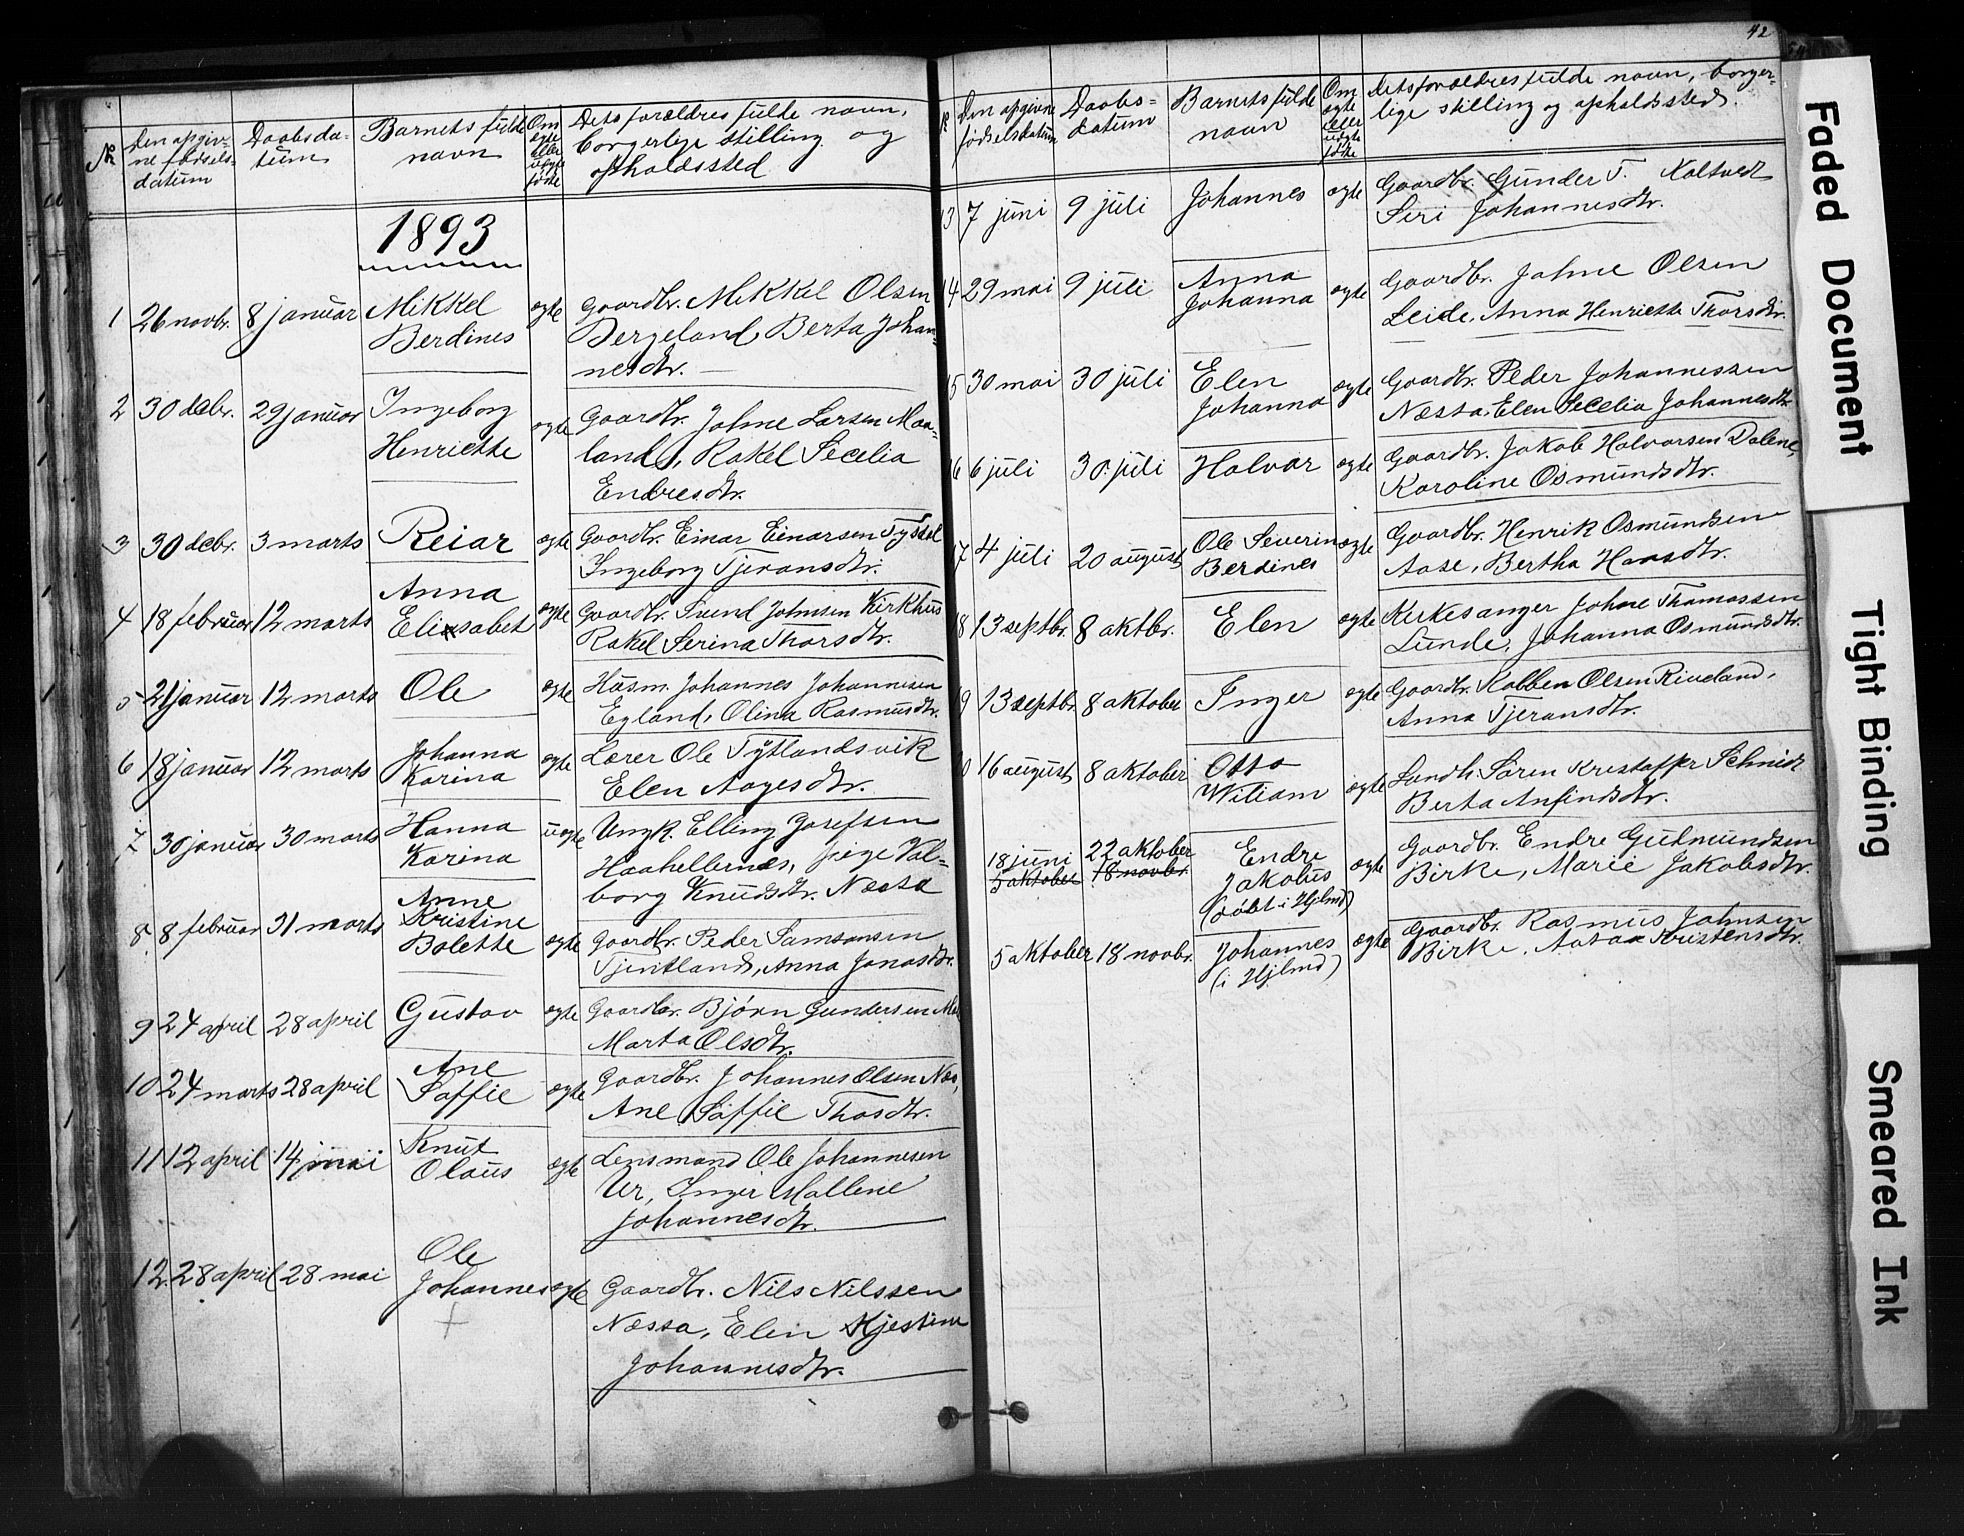 Nr.
Den opgiv-
ne fødsels-
datum
Daabsda-
tum
Barnets fulde
navn
Om
egte
eller
uegte
fødte
Dets forældres fulde navn,
borgerlige stilling og
opholdssted
1893
1 26 novbr. 8 januar Mikkel egte Gaardbr. Mikkel Olsen
Berdines Bergeland, Berta Johan-
nesdtr.
2 30 decbr. 29 januar Ingeborg egte Gaardbr. Johne Larsen Maa-
Henriette land, Rakel Secelia
Endresdtr.
3 30 decbr. 3 marts Reiar egte Gaardbr. Einar Einarsen Tysdal
Ingeborg Tjeransdtr.
4 18 februar 12 marts Anna egte Gaardbr. Svend Johnsen Kirkhus
Elisabet Rakel Serina Thorsdtr.
5 21 januar 12 marts Ole egte Husm. Johannes Johannesen
Egland, Olina Rasmusdtr.
6 18 januar 12 marts Johanna egte Lærer Ole Tytlandsvik
Karina Elen Aagesdtr.
7 30 januar 30 marts Hanna uegte Ungk. Elling Josefsen
Karina Haahellernes, pige Val-
borg Knudsdtr. Næssa
8 8 februar 31 marts Anne
Kristine
Bolette egte Gaardbr. Peder Samsonsen
Tjentland, Anna Jonasdtr.
9 24 april 28 april Gustav egte Gaardbr. Bjørn Gundersen
Marta Olsdtr.
10 24 marts 28 april Ane egte Gaardbr. Johannes Olsen Næs,
Saffie Ane Saffie Thosdtr.
11 12 april 14 mai Knut egte Lensmand Ole Johannesen
Olaus Ur, Inger Mallene
Johannesdtr.
12 28 april 28 mai Ole
Johannes egte Gaardbr. Nils Nilssen
Næssa, Elen Kjestine
Johannesdtr.
42
Nr.
Den opgivne
fødselsdatum
Daabs-
datum
Barnets fulde
navn
Om
egte
eller
uegte
fødte
Dets forældres fulde navn, borger-
lige stilling og opholdssted.
13 7 juni 9 juli Johannes egte Gaardbr. Gunder T. Kaltvedt
Seri Johannesdtr.
14 29 mai 9 juli Anna egte Gaardbr. Johne Olsen
Johanna Leide, Anna Henriette Thorsdtr.
15 30 mai 30 juli Elen egte Gaardbr. Peder Johannessen
Johanna Næssa, Elen Secelia Johannesdtr.
16 6 juli 30 juli Halvar egte Gaardbr. Jakob Halvorsen Dalene,
Karoline Osmundsdtr.
17 4 juli 20 august Ole Severin egte Gaardbr. Henrik Osmundsen
Berdines Aase, Bertha Hansdtr.
18 13 septbr. 8 aktbr. Elen egte Kirkesanger Johne Thomassen
Lunde, Johanna Osmundsdtr.
19 13 septbr. 8 aktober Inger egte Gaardbr. Kolben Olsen Riveland,
Anna Tjeransdtr.
20 16 august 8 aktober Otto egte Landh. Søren Kristoffer Schmidt
Wiliam Berta Anfindsdtr.
18 juni 22 aktober Endre egte Gaardbr. Endre Gudmundsen
5 aktober 18 novbr. Jakobus Birke, Marie Jakobsdtr.
(døbt i Hjlmd)
5 aktober 18 novbr. Johannes egte Gaardbr. Rasmus Johnsen
(i Hjlmd) Birke, Aasa Kristensdtr.
Faded Document
Tight Binding
Smeared Ink